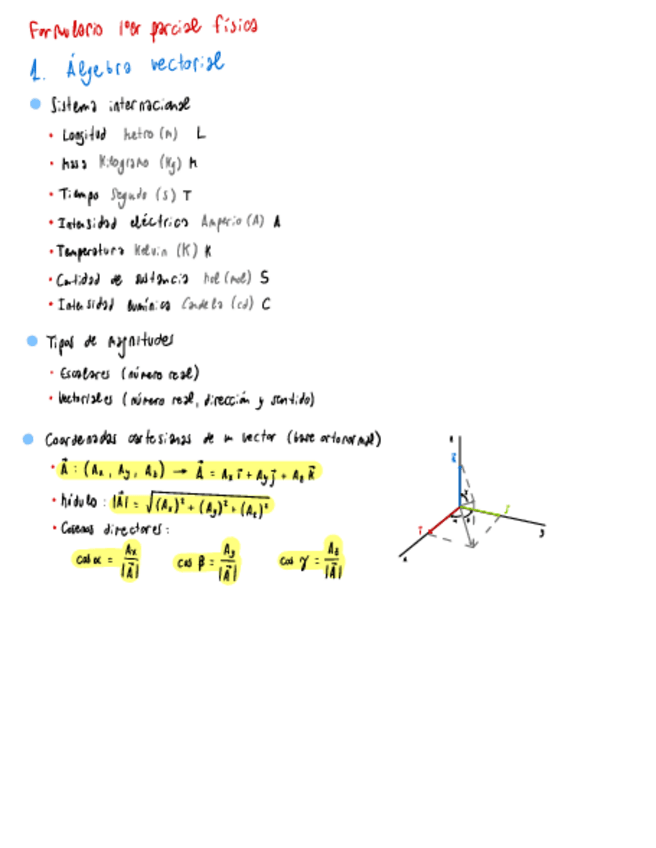 Formulario 1er parcial física
1. Álgebra vectorial
Sistema internacional
• Longitud Metro (m) L
• Masa Kilogramo (Kg) M
• Tiempo Segundo (s) T
• Intensidad eléctrica Amperio (A) A
• Temperatura Kelvin (K) K
• Cantidad de sustancia Mol (mol) S
• Intensidad lumínica Candela (cd) C
Tipos de Magnitudes
• Escalares (número real)
• Vectoriales (número real, dirección y sentido)
Coordenadas cartesianas de un vector (base ortonormal)
• A⃗ : (Ax, Ay, Az) → A⃗ = Ax i⃗ + Ay j⃗ + Az k⃗
• Módulo : |A⃗| = √((Ax)² + (Ay)² + (Az)²)
• Cosenos directores :
cos α = Ax/|A⃗| cos β = Ay/|A⃗| cos γ = Az/|A⃗|